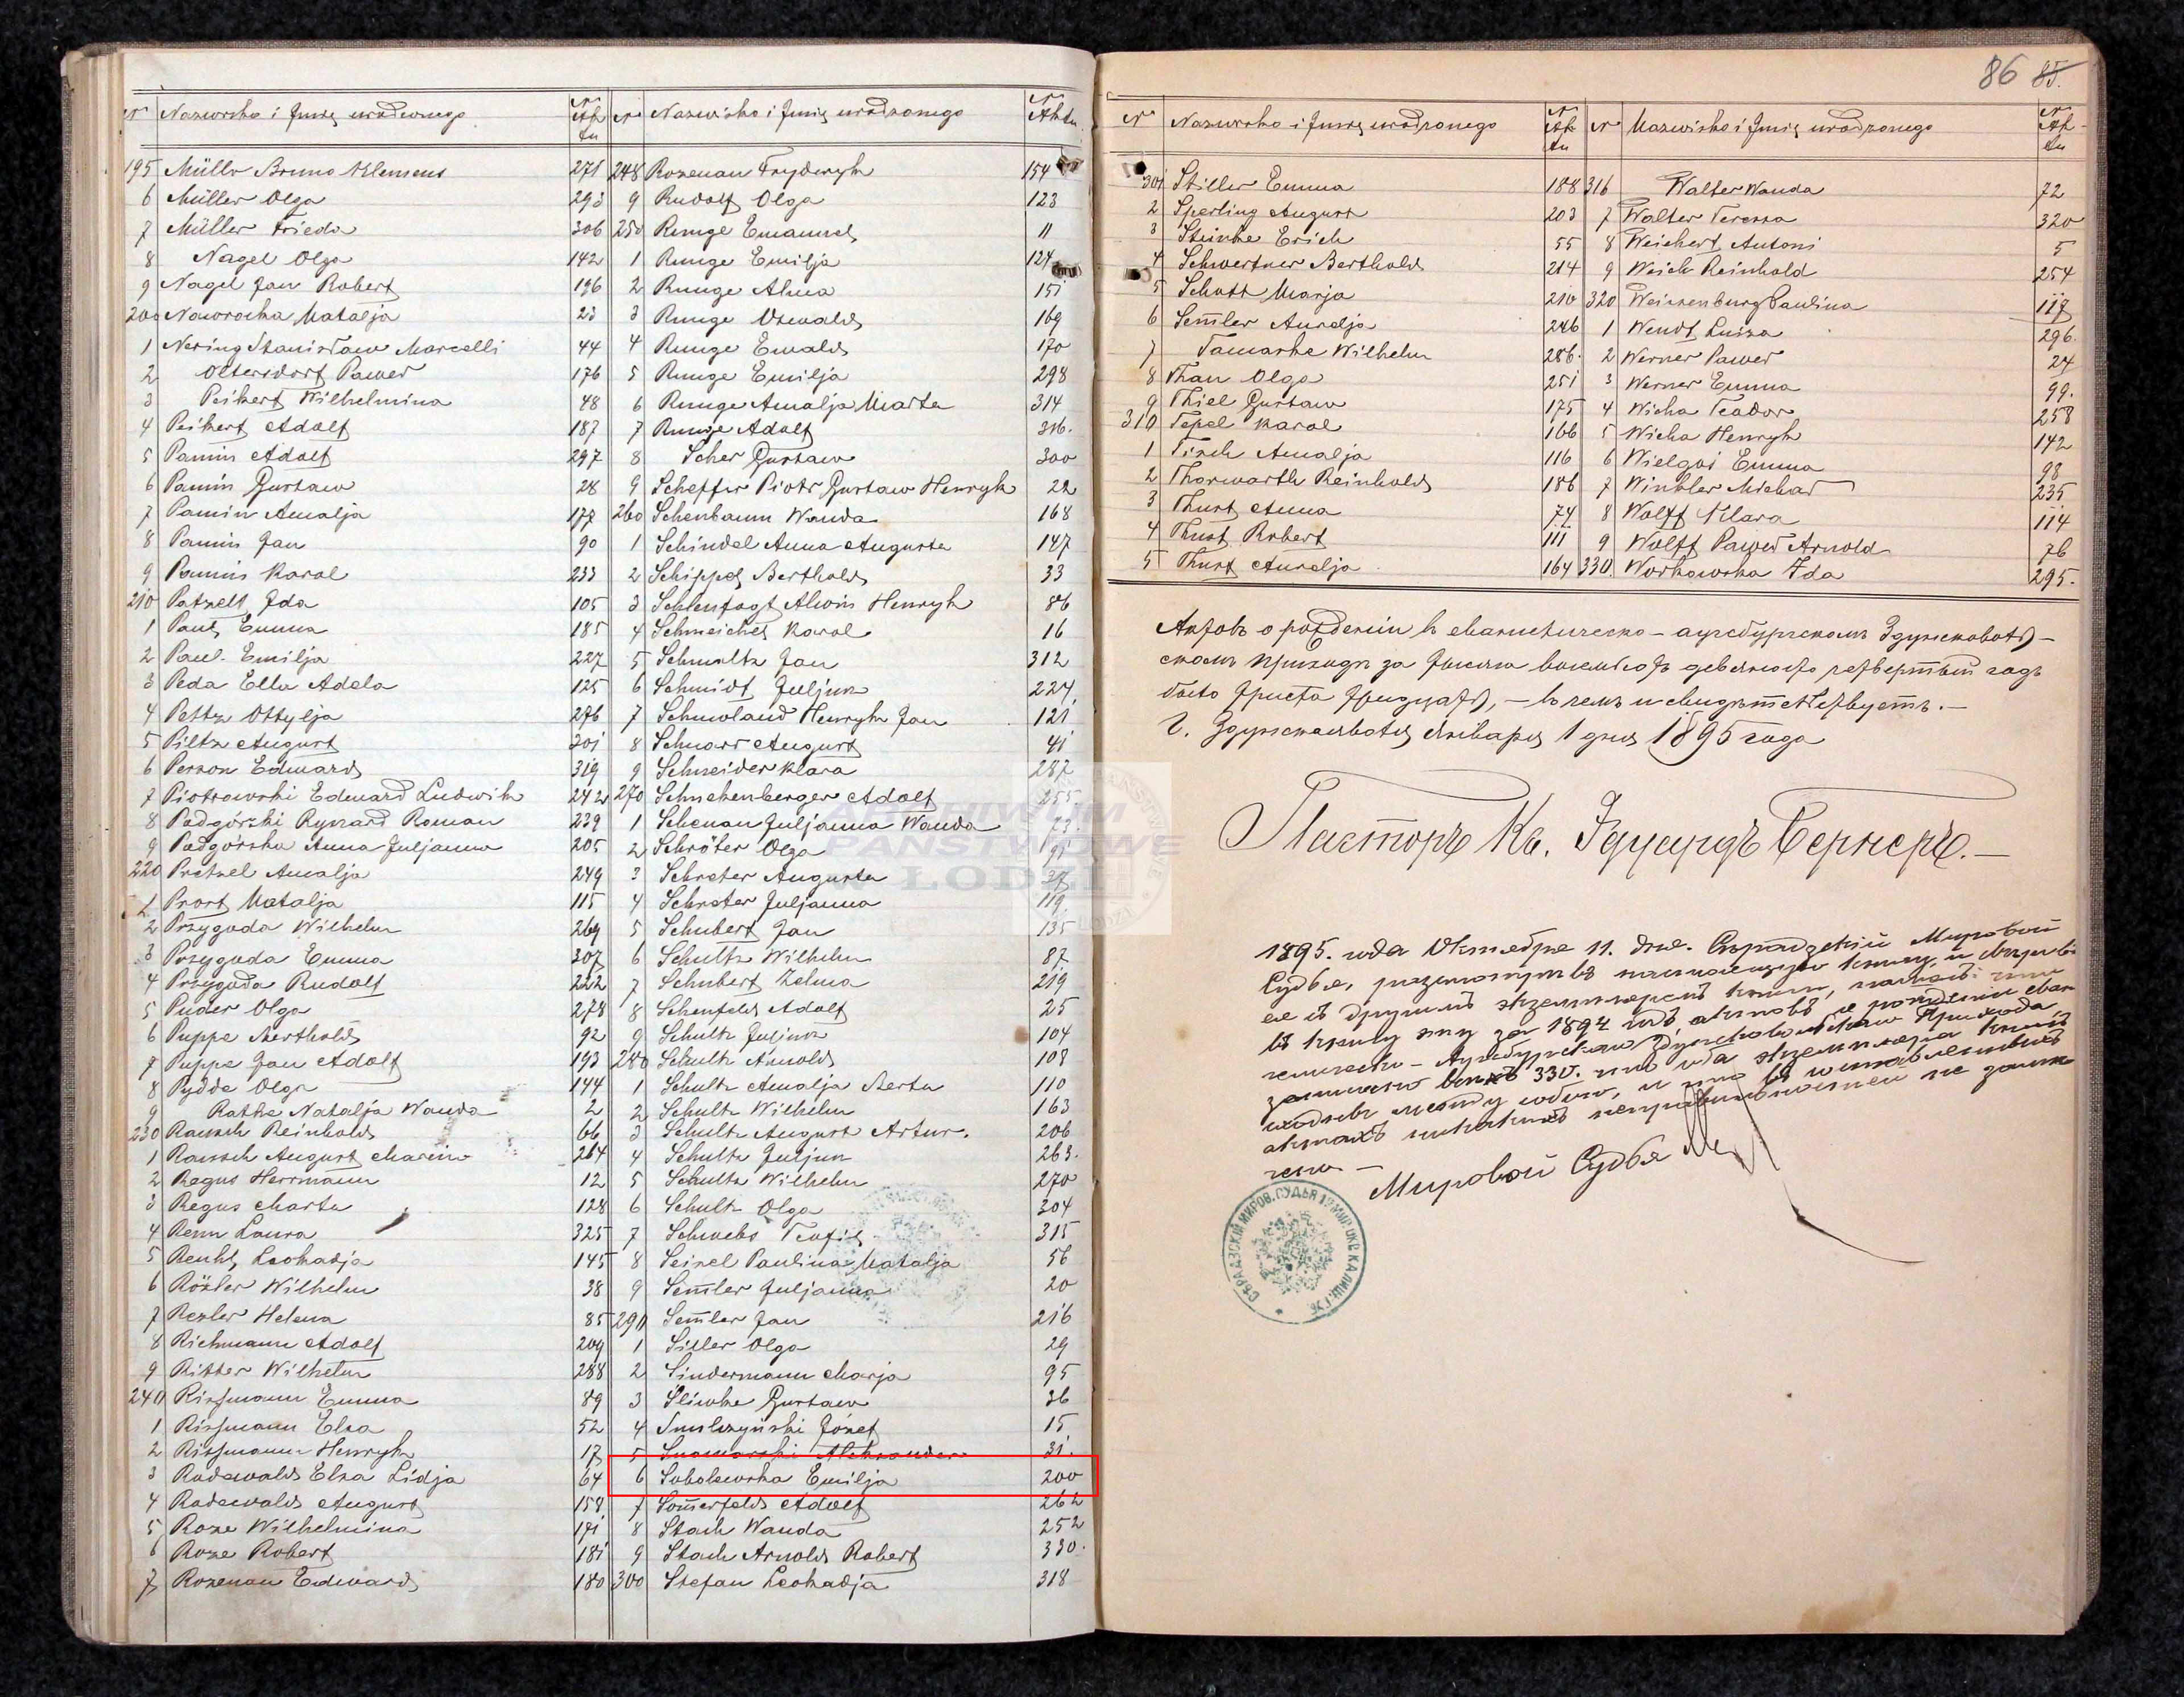 86 85.
Nr Nazwisko i Imię urodzonego Nr Aktu Nr Nazwisko i Imię urodzonego Nr Aktu
195 Müller Bruno Klemens 271
6 Müller Olga 293
7 Müller Frieda 306
8 Nagel Olga 142
9 Nagel Jan Robert 196
200 Nawrocka Natalja 23
1 Nering Stanisław Marcelli 44
2 Oltersdorf Paweł 176
3 Peikert Wilhelmina 48
4 Peikert Adolf 187
5 Pamin Adolf 297
6 Pamin Gustaw 28
7 Pamin Amalja 177
8 Pamin Jan 90
9 Pamin Karol 233
210 Patzelt Ida 105
1 Paul Emma 185
2 Paul Emilja 227
3 Peda Ella Adela 125
4 Peltz Ottylja 276
5 Piltz August 301
6 Perzon Edward 319
7 Piotrowski Edward Ludwik 242
8 Podgórski Ryszard Roman 239
9 Podgórska Anna Juljanna 205
220 Pretzel Amalja 249
1 Prost Natalja 115
2 Przygoda Wilhelm 269
3 Przygoda Emma 307
4 Przygoda Rudolf 222
5 Puder Olga 278
6 Puppe Berthold 92
7 Puppe Jan Adolf 193
8 Pydde Olga 144
9 Rathe Natalja Wanda 2
230 Rausch Reinhold 66
1 Rausch August Marcin 264
2 Regus Herrmann 12
3 Regus Marta 128
4 Renn Laura 325
5 Leokadja 145
6 Rözler Wilhelm 38
7 Rezler Helena 85
8 Richmann Adolf 209
9 Ritter Wilhelm 288
240 Rissmann Emma 89
1 Rissmann Elza 52
2 Rissmann Henryk 17
3 Rodewald Elza Lidja 64
4 Rodewald August 158
5 Roze Wilhelmina 171
6 Roze Robert 181
7 Rozenau Edward 180
248 Rozenau Fryderyk 154
9 Rudolf Olga 123
250 Runge Emanuel 11
1 Runge Emilja 124
2 Runge Alma 151
3 Runge Oswald 169
4 Runge Ewald 170
5 Runge Emilja 298
6 Runge Amalja Marta 314
7 Runge Adolf 316.
8 Scher Gustaw 300
9 Scheffer Piotr Gustaw Henryk 22
260 Schenbaum Wanda 168
1 Schindel Anna Augusta 147
2 Schippel Berthold 33
3 Schlenfogt Alwin Henryk 86
4 Schmeichel Karol 16
5 Schmaltz Jan 312
6 Schmidt Juljan 224
7 Schmoland Henryk Jan 121
8 Schnarr August 41
9 Schneider Klara 287
270 Schnekenberger Adolf 255
1 Schenau Juljanna Wanda 73
2 Schröter Olga 91
3 Schroter Augusta 37
4 Schroter Juljanna 119
5 Schubert Jan 135
6 Schultz Wilhelm 87
7 Schubert Zelma 219
8 Schenfeld Adolf 25
9 Schultz Juljan 104
280 Schultz Arnold 108
1 Schultz Amalja Berta 110
2 Schultz Wilhelm 163
3 Schultz August Artur. 206
4 Schultz Juljan 263.
5 Schultz Wilhelm 270
6 Schultz Olga 304
7 Schwebs Teofil 315
8 Seizel Paulina Natalja 56
9 Sem̄ler Juljanna 20
290 Sem̄ler Jan 216
1 Siller Olga 29
2 Sindermann Marja 95
3 Śliwke Gustaw 36
4 Smulczyński Józef 15
5 Aleksander 31.
6 Sobolewska Emilja 200
7 Som̄erfeld Adolf 262
8 Stach Wanda 252
9 Stach Arnold Robert 330.
300 Stefan Leokadja 318
Nr Nazwisko i Imię urodzonego Nr Aktu Nr Nazwisko i Imię urodzonego Nr Aktu
301 Stiller Emma 188
2 Sperling August 203
3 Steinke Erich 55
4 Schwertner Berthold 214
5 Schott Marja 210
6 Sem̄ler Aurelja 246
7 Tamaske Wilhelm 286.
8 Than Olga 251
9 Thiel Gustaw 175
310 Tepel Karol 166
1 Tisch Amalja 116
2 Thorwarth Reinhold 186
3 Thust Anna 74
4 Thust Robert 111
5 Thust Aurelja 164
316 Walter Wanda 72
7 Walter Teressa 320
8 Weichert Antoni 5
9 Weich Reinhold 254
320 Weissenburg Paulina 117
1 Wendt Luiza 296.
2 Werner Paweł 24
3 Werner Emma 99.
4 Wicha Teodor 258
5 Wicha Henryk 142
6 Wielgoś Emma 98
7 Winkler Michał 235
8 Wolff Klara 114
9 Wolff Paweł Arnold 76
330. Workowska Ida 295.
Актовъ о рожденіи въ евангелическо-аугсбургскомъ Здунсковоль-
скомъ приходѣ за тысяча восемьсотъ девяносто четвертый годъ
было триста тридцать, – въ чемъ и свидѣтельствуетъ. –
Г. Здунскаяволя Января 1 дня 1895 года
Пасторъ Кс. Эдуардъ Бернеръ. –
1895. года Октября 11. дня. Сѣрадзскій Мировой
Судья, разсмотрѣвъ настоящую книгу и свѣривъ
ее съ другимъ экземпляромъ книги, нашелъ: что
въ книгу эту за 1894 годъ актовъ о рожденіи еван
гелическо-Аугсбургскаго Здунсковольскаго Прихода
записано всѣхъ 330. что оба экземпляра книги
сходны между собою, и что въ составленныхъ
актахъ никакихъ неправильностей не замѣ
чено –
Мировой Судья
СѢРАДЗСКІЙ МИРОВ. СУДЬЯ 1 МИР. ОКР. КАЛИШ. ГУБ.
ARCHIWUM
PAŃSTWOWE
W ŁODZI